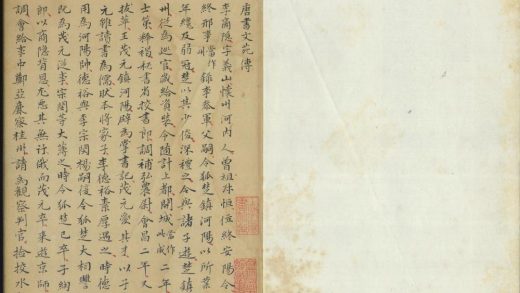 唐書文苑傳
李商隱字義山懷州河內人曾祖叔恒位終安陽令
終邢州當作錄事參軍父嗣令狐楚鎮河陽以所業
年纔及弱冠楚以其少俊深禮之令與諸子遊楚鎮
州從為巡官歲給資裝令隨計上都開成當作二年
士第釋褐秘書省校書郎調補弘農尉會昌二年又
拔萃王茂元鎮河陽辟為掌書記茂元愛其才以子
元雖讀書為儒然本將家子李德裕素厚遇之時德
用為河陽帥德裕與李宗閔楊嗣復令狐楚大相讎
既為茂元從事宗閔等大薄之時令狐楚已卒子綯
郎以商隱背恩尤惡其無行俄而茂元卒來遊京師
調會給事中鄭亞廉察桂州請為觀察判官撿校水